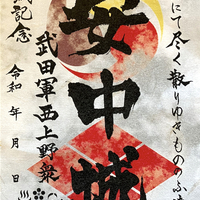 にて尽く散りゆきものゝふ
安中城
武田軍西上野衆
記念
令和 年 月 日